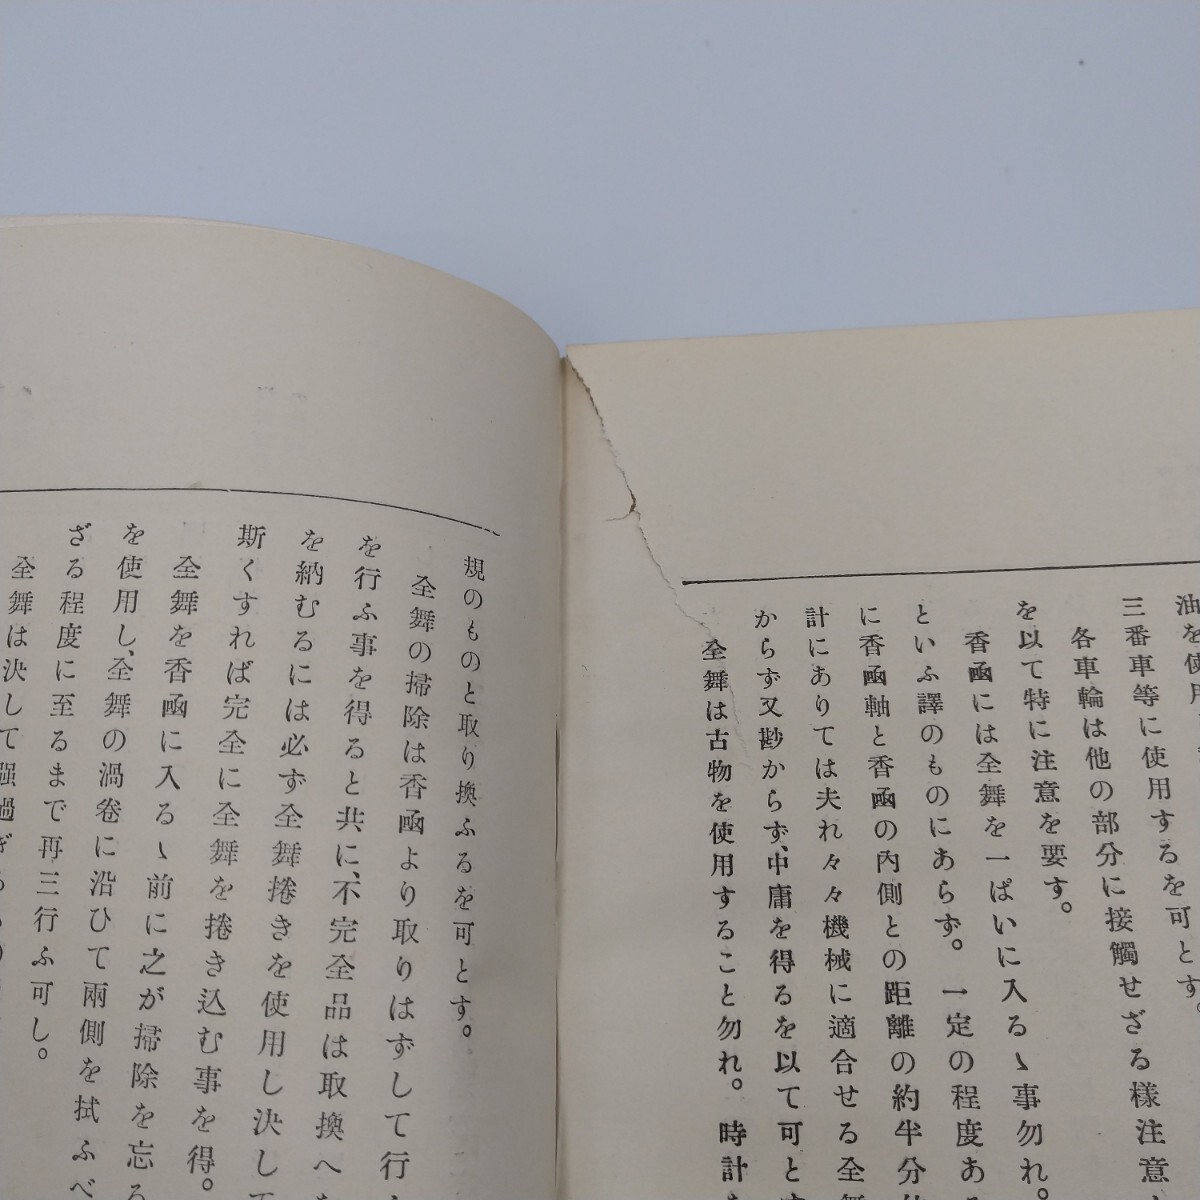 油を使用
三番車等に使用するを可とす。
各車輪は他の部分に接觸せざる様注意
を以て特に注意を要す。
香凾には全舞を一ぱいに入るゝ事勿れ。
といふ譯のものにあらず。一定の程度あ
に香凾軸と香凾の內側との距離の約半分
計にありては夫れ々々機械に適合せる全
からず又尠からず、中庸を得るを以て可とす
全舞は古物を使用すること勿れ。時計
規のものと取り換ふるを可とす。
全舞の掃除は香凾より取りはずして行
を行ふ事を得ると共に、不完全品は取換へ
を納むるには必ず全舞捲きを使用し決し
斯くすれば完全に全舞を捲き込む事を得。
全舞を香凾に入るゝ前に之が掃除を忘る
を使用し、全舞の渦卷に沿ひて兩側を拭ふべ
ざる程度に至るまで再三行ふ可し。
全舞は決して强過ぎる